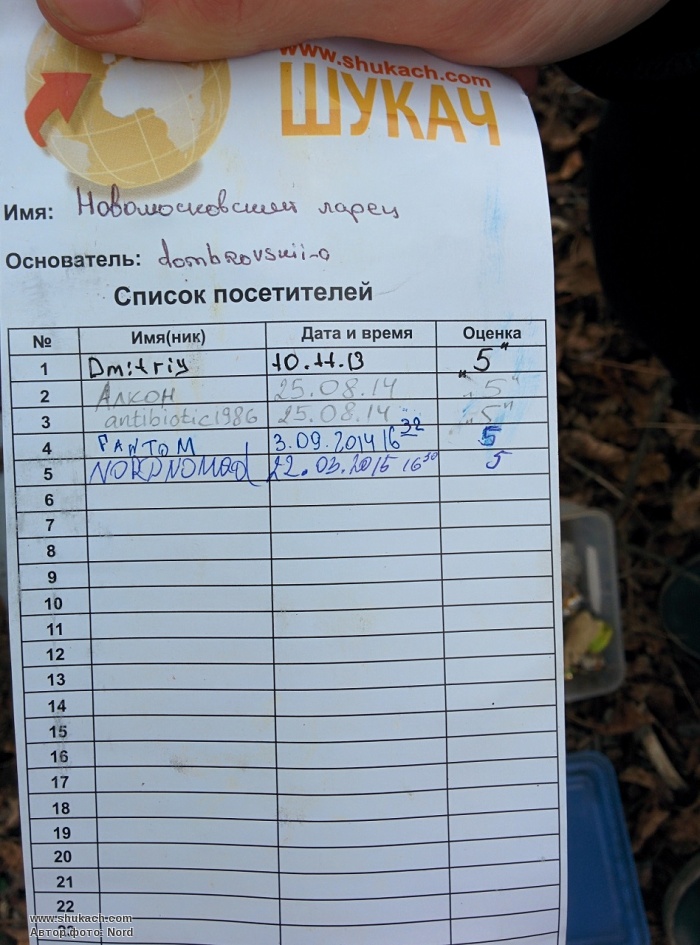 www.shukach.com
ШУКАЧ
Имя: Новомосковский ларец
Основатель: dombrovskii-o
Список посетителей
№ Имя(ник) Дата и время Оценка
1 Dmitriy 10.11.13 „5"
2 Алкон 25.08.14 „5"
3 antibiotic1986 25.08.14 „5"
4 FANTOM 3.09.2014 16 32 5
5 NORDNOMAD 22.03.2015 16 30 5
6
7
8
9
10
11
12
13
14
15
16
17
18
19
20
21
22
23
www.shukach.com
Автор фото: Nord